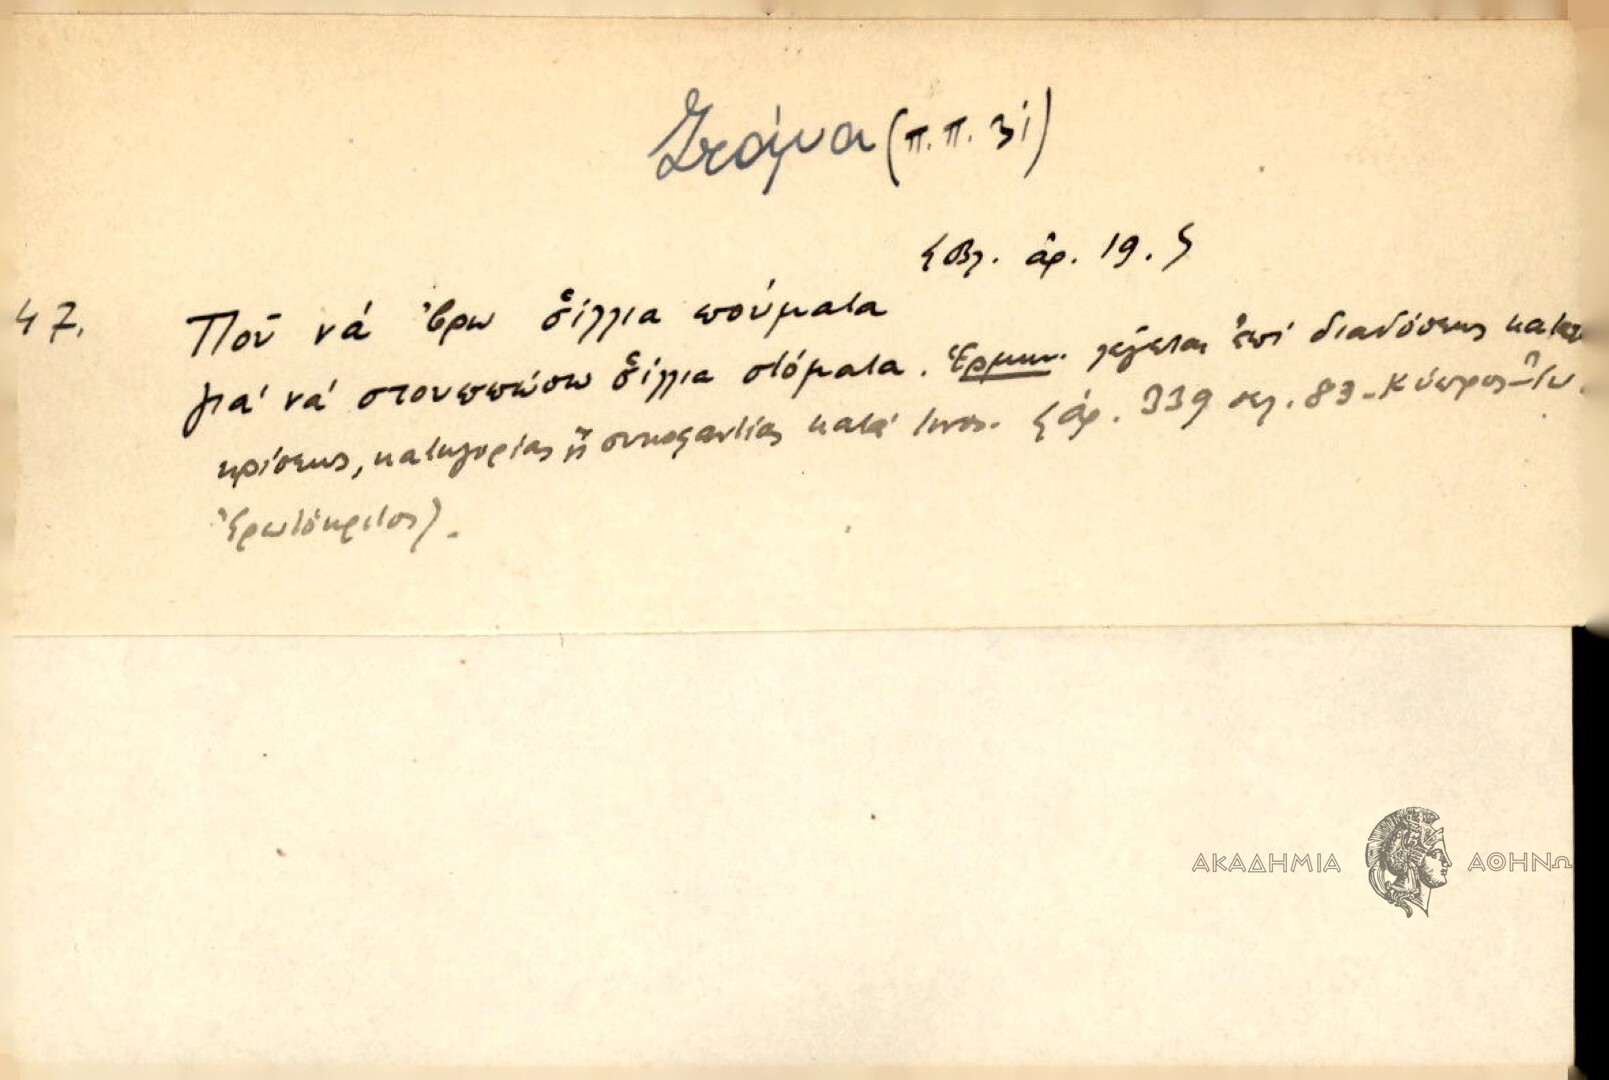 Στόμα (π.π. 31)
{Βλ. ἀρ. 19.}
47. Ποῦ νά 'βρω δ̌ίλλια πούματα
γιά νά στουππώσω δ̌ίλλια στόματα. Ἑρμην. λέγεται ἐπί διαδόσεως κατα
κρίσεως, κατηγορίας ἤ συκοφαντίας κατά τινος. {ἀρ. 339 σελ. 83 - Κύπρος
Ἐρωτόκριτος).
ΑΚΑΔΗΜΙΑ ΑΘΗΝΩ